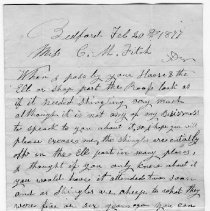 Bedford Feb 20th 1877
Mrs C. M. Fitch
Dr
When I pass by your House & the
Ell or Shop part the Roofs look as
if it needed Shingling very much
although it is not any of my Business
to speak to you about it, I hope you will
please excuse me, the shingles are outally
off in the Ell part in many places, I
thought if you only knew what it
you would have it attended too soon
and as Shingles are cheeper to what they
were five or six years ago you can